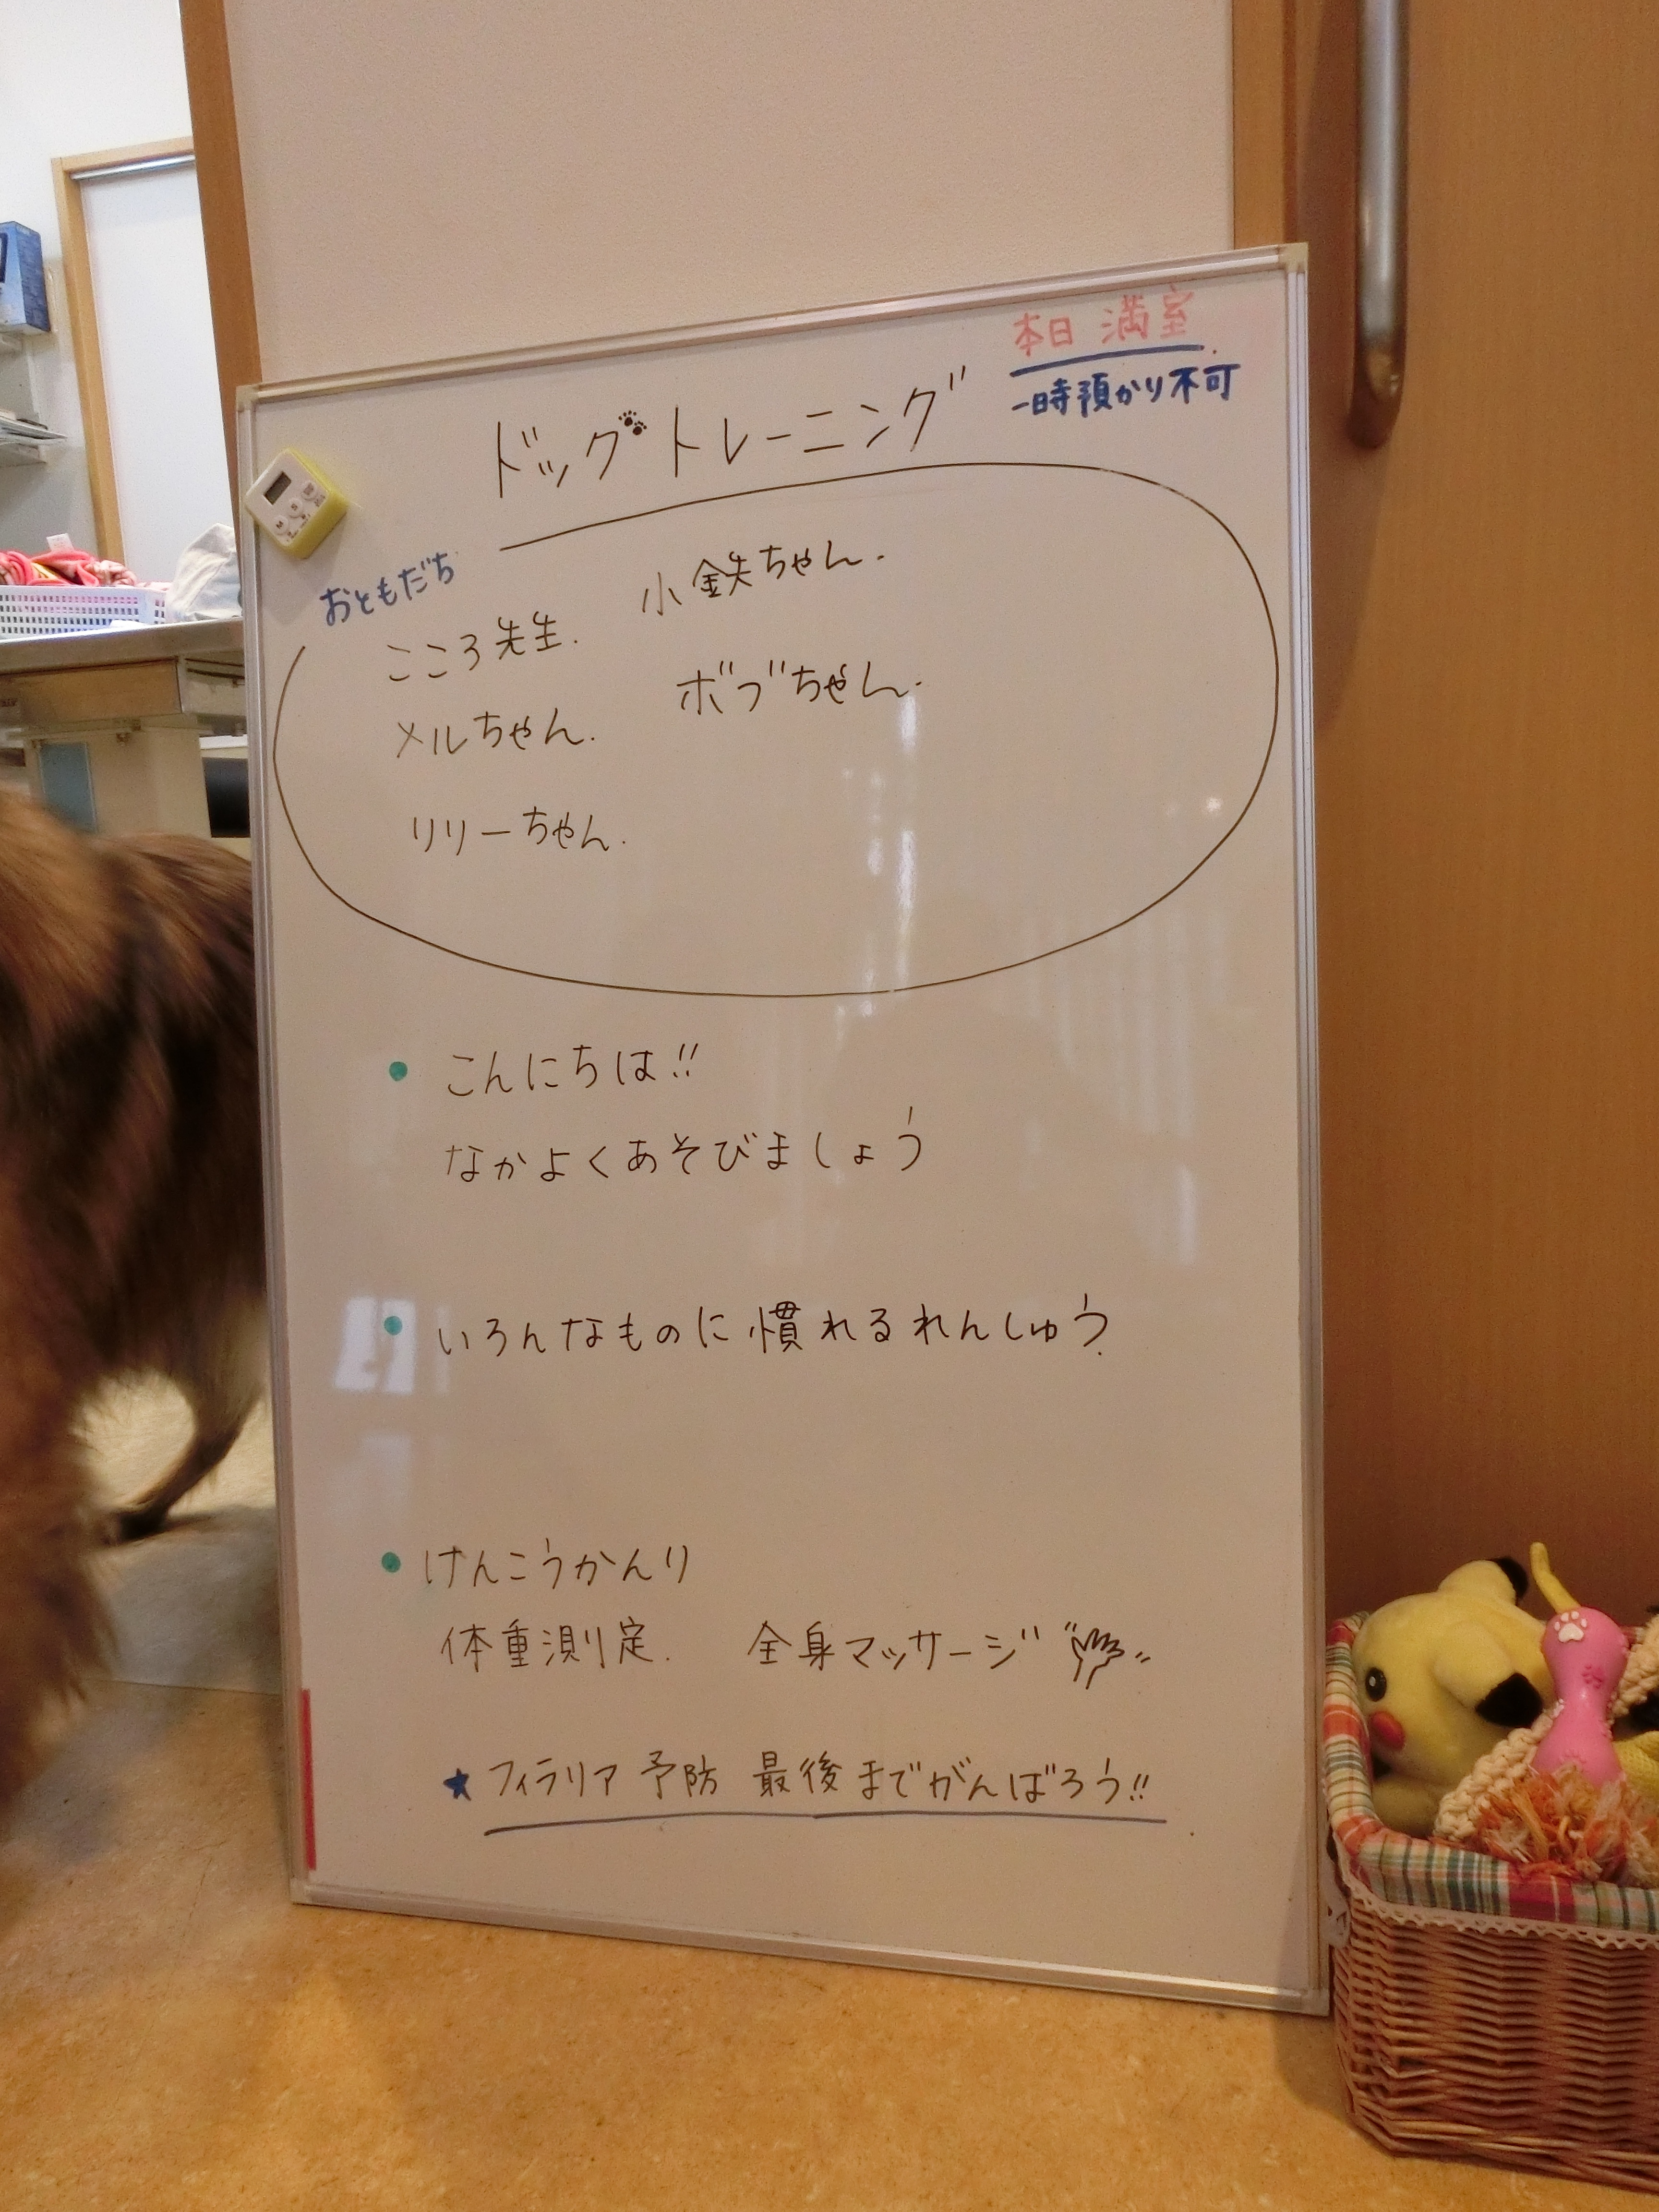 本日 満室
一時預かり不可
ドッグトレーニング
おともだち
こころ先生.
メルちゃん.
リリーちゃん.
小鉄ちゃん.
ボブちゃん.
• こんにちは!!
なかよくあそびましょう
• いろんなものに慣れるれんしゅう.
• けんこうかんり
体重測定. 全身マッサージ
★ フィラリア予防 最後までがんばろう!!